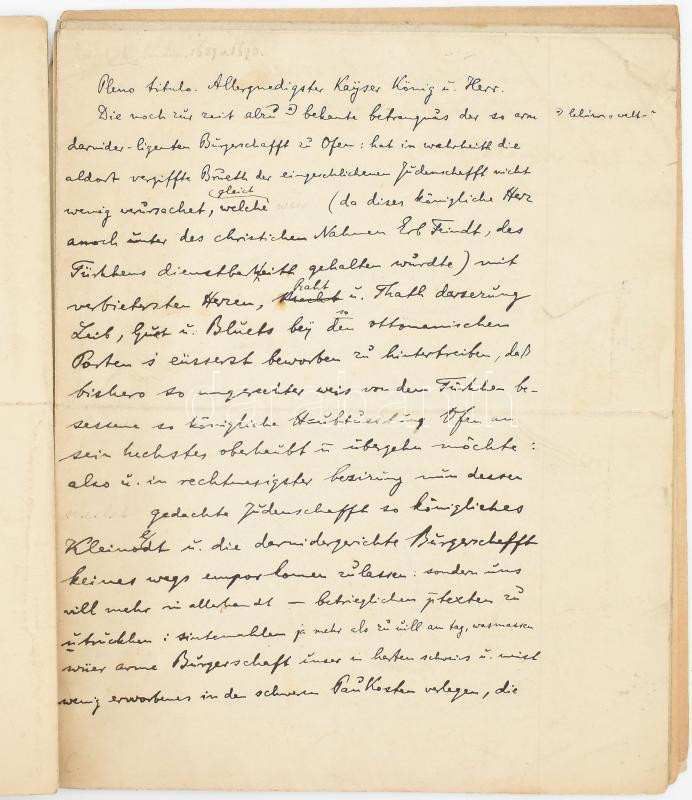 1689 u. 1690.
Pleno titulo. Allergnedigster Kaÿser König u. Herr.
Die noch zur zeit alzu bekante betrangnus der so arm
darnider-ligenten Bürgerschafft zu Ofen: hat in wahrheith die
aldort vergiffte Brueth der eingeschlichenen Judenschafft nicht
gleich
wenig verursachet, welche (da dises königliche Herz
anoch unter des christlichen Nahmen Erb Feindt, des
Türkhens dienstbarkeith gehalten würdte) mit
verbietersten Herzen, u. Thath darsezung
Raht
so
Leib, Guet u. Bluets beÿ den ottomanischen
Porten s eüsserst beworben zu hintertreiben, daß
bishero so ungerechter weis von dem Türkhen be-
sessene so königliche Haubt Ofen an
sein hechstes oberhaubt u übergehn möchte:
also u. in rechtmesigster bezirung nun dessen
gedachte Judenschafft so königliches
Kleinodt u. die darnidergerichte Bürgerschafft
keines wegs empor komen zulassen: sondern uns
vill mehr in allerhandt — betrieglichen ptexten zu
utruckhen: sintemahlen ja mehr als zu vill am tag, wasmassen
wüer arme Bürgerschafft unser in harten schweis u. mist
wenig erworbenes in den schweren PauKosten verlegen, die
darabanth